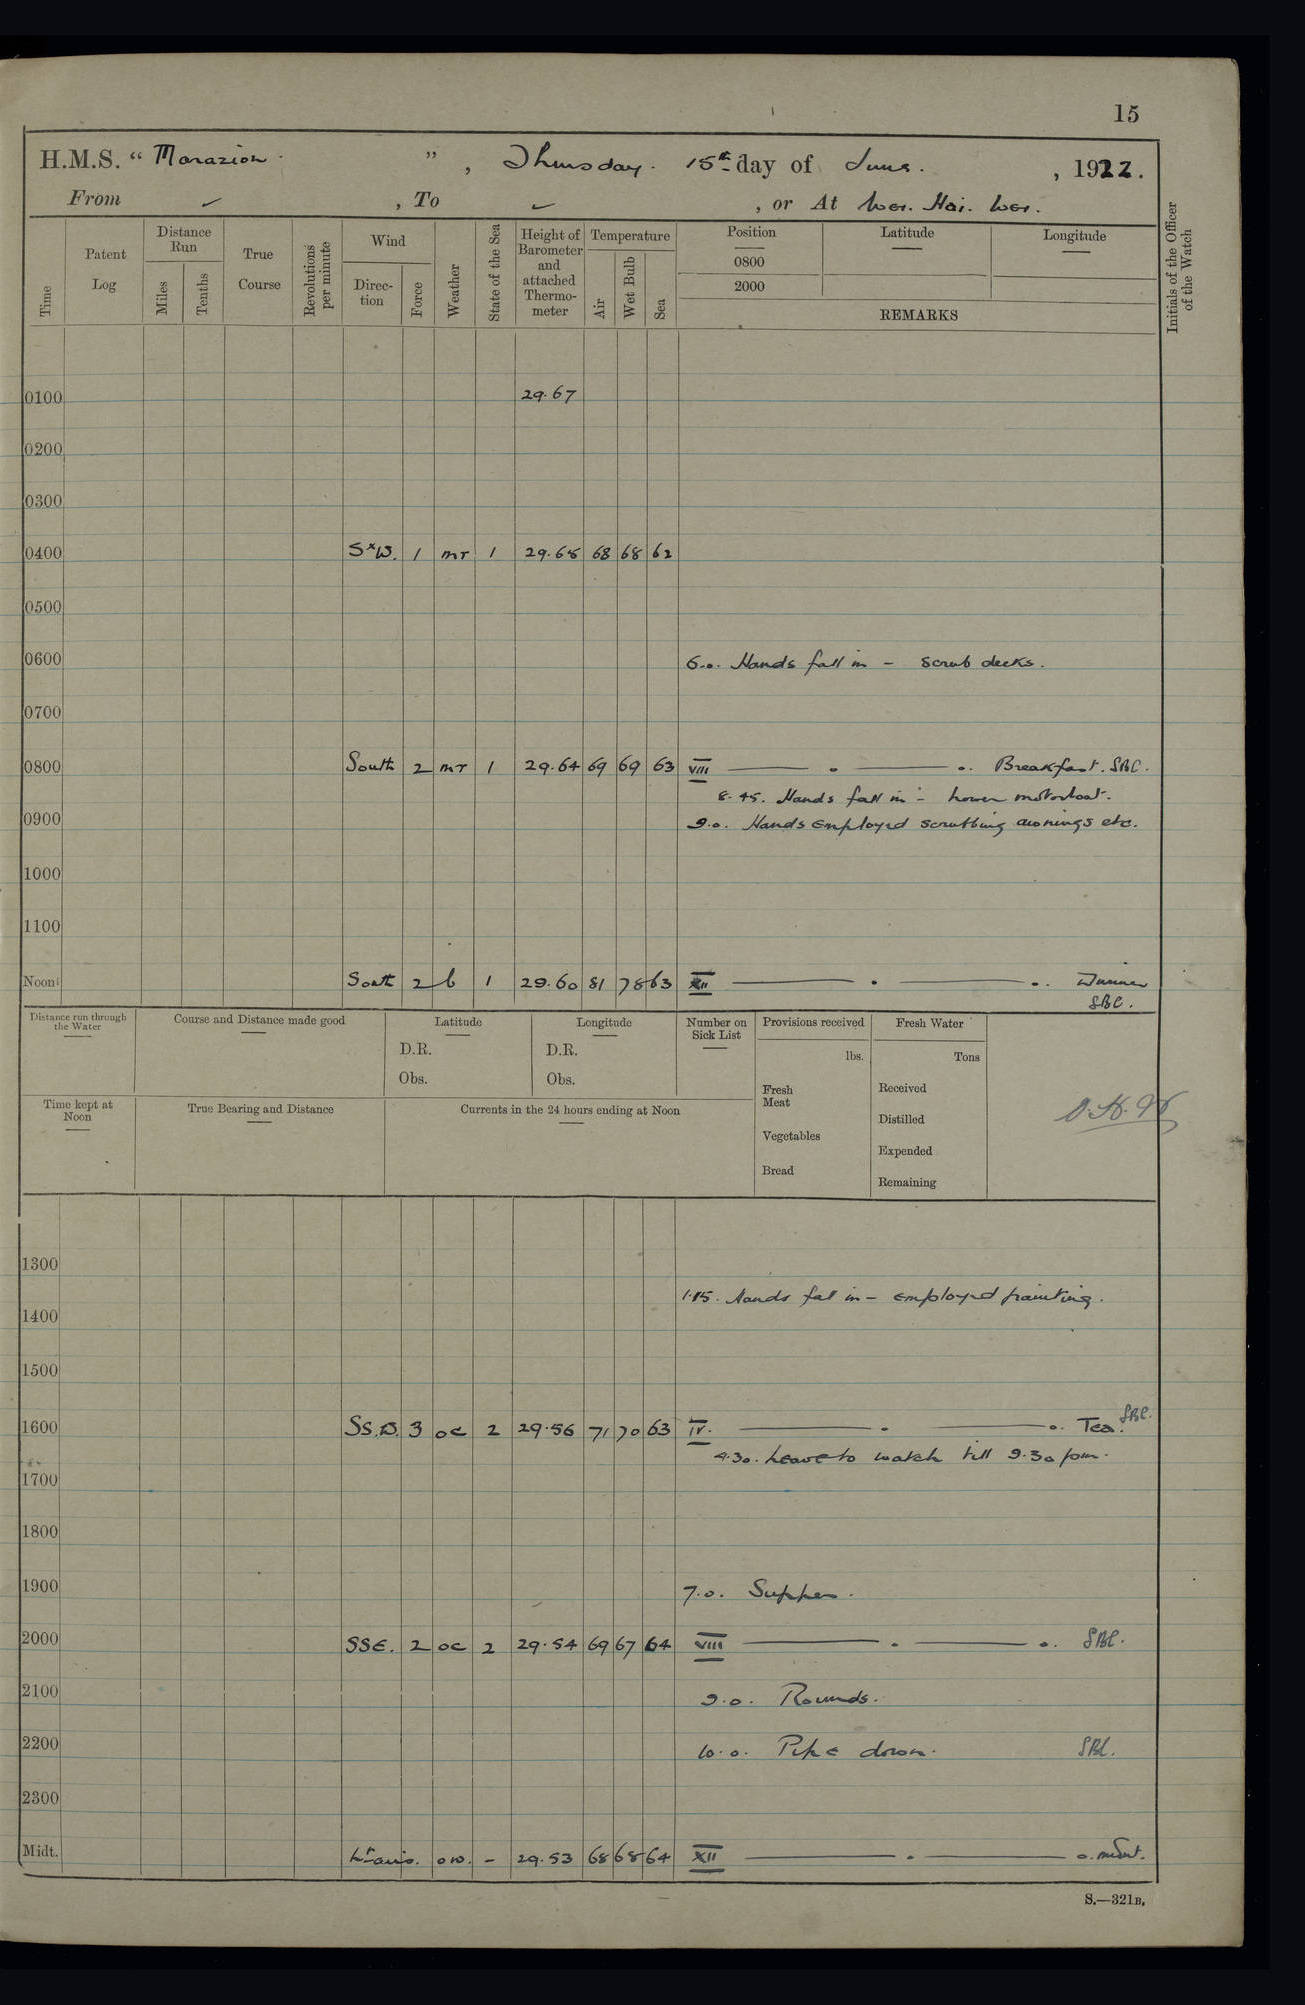 15
H.M.S. “ Marazion. ” , Thursday. 15th day of June. , 1922.
From ✓ , To ✓ , or At Wei. Hai. Wei.
Time
Patent Log
Distance Run
Miles
Tenths
True Course
Revolutions per minute
Wind
Direction
Force
Weather
State of the Sea
Height of Barometer and attached Thermometer
Temperature
Air
Wet Bulb
Sea
Position
0800
2000
Latitude
Longitude
REMARKS
Initials of the Officer of the Watch
0100 29.67
0200
0300
0400 SxW. 1 mr 1 29.65 68 68 62
0500
0600 6.0. Hands fall in – scrub decks.
0700
0800 South 2 mr 1 29.64 69 69 63 VIII Breakfast. SBC.
8.45. Hands fall in – lower motorboat.
0900 9.0. Hands employed scrubbing awnings etc.
1000
1100
Noon South 2 b 1 29.60 81 78 63 XII Dinner
SBC.
Distance run through the Water
Course and Distance made good
Latitude
D.R.
Obs.
Longitude
D.R.
Obs.
Number on Sick List
Provisions received
lbs.
Fresh Meat
Vegetables
Bread
Fresh Water
Tons
Received
Distilled
Expended
Remaining
Time kept at Noon
True Bearing and Distance
Currents in the 24 hours ending at Noon
1300
1.15. Hands fall in – employed painting.
1400
1500
1600 SS.W. 3 oc 2 29.56 71 70 63 IV. Tea. SBC.
4.30. Leave to watch till 9.30 pm.
1700
1800
1900 7.0. Supper.
2000 SSE. 2 oc 2 29.54 69 67 64 VIII SBC.
2100 9.0. Rounds.
2200 10.0. Pipe down. SBC.
2300
Midt. Lt airs. ow. – 29.53 68 68 64 XII midnt.
S.—321B.